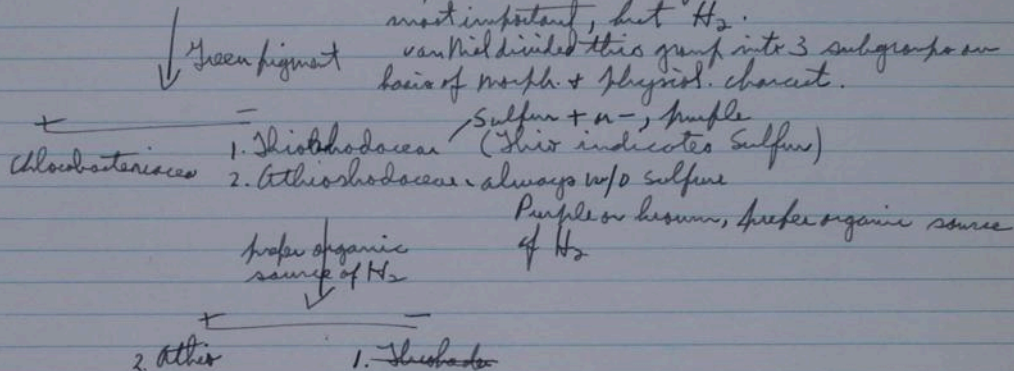 most important, but H₂.
Green pigment
van Niel divided this group into 3 subgroups on
basis of morph. & physiol. charact.
+ −
Chlorobacteriacea
1. Thiorhodaceae Sulfur + or −, purple
(Thio indicates Sulfur)
2. Athiorhodaceae - always w/o sulfur
Purple or brown, prefer organic source
of H₂
prefer organic
source of H₂
+ −
2. Athio 1.